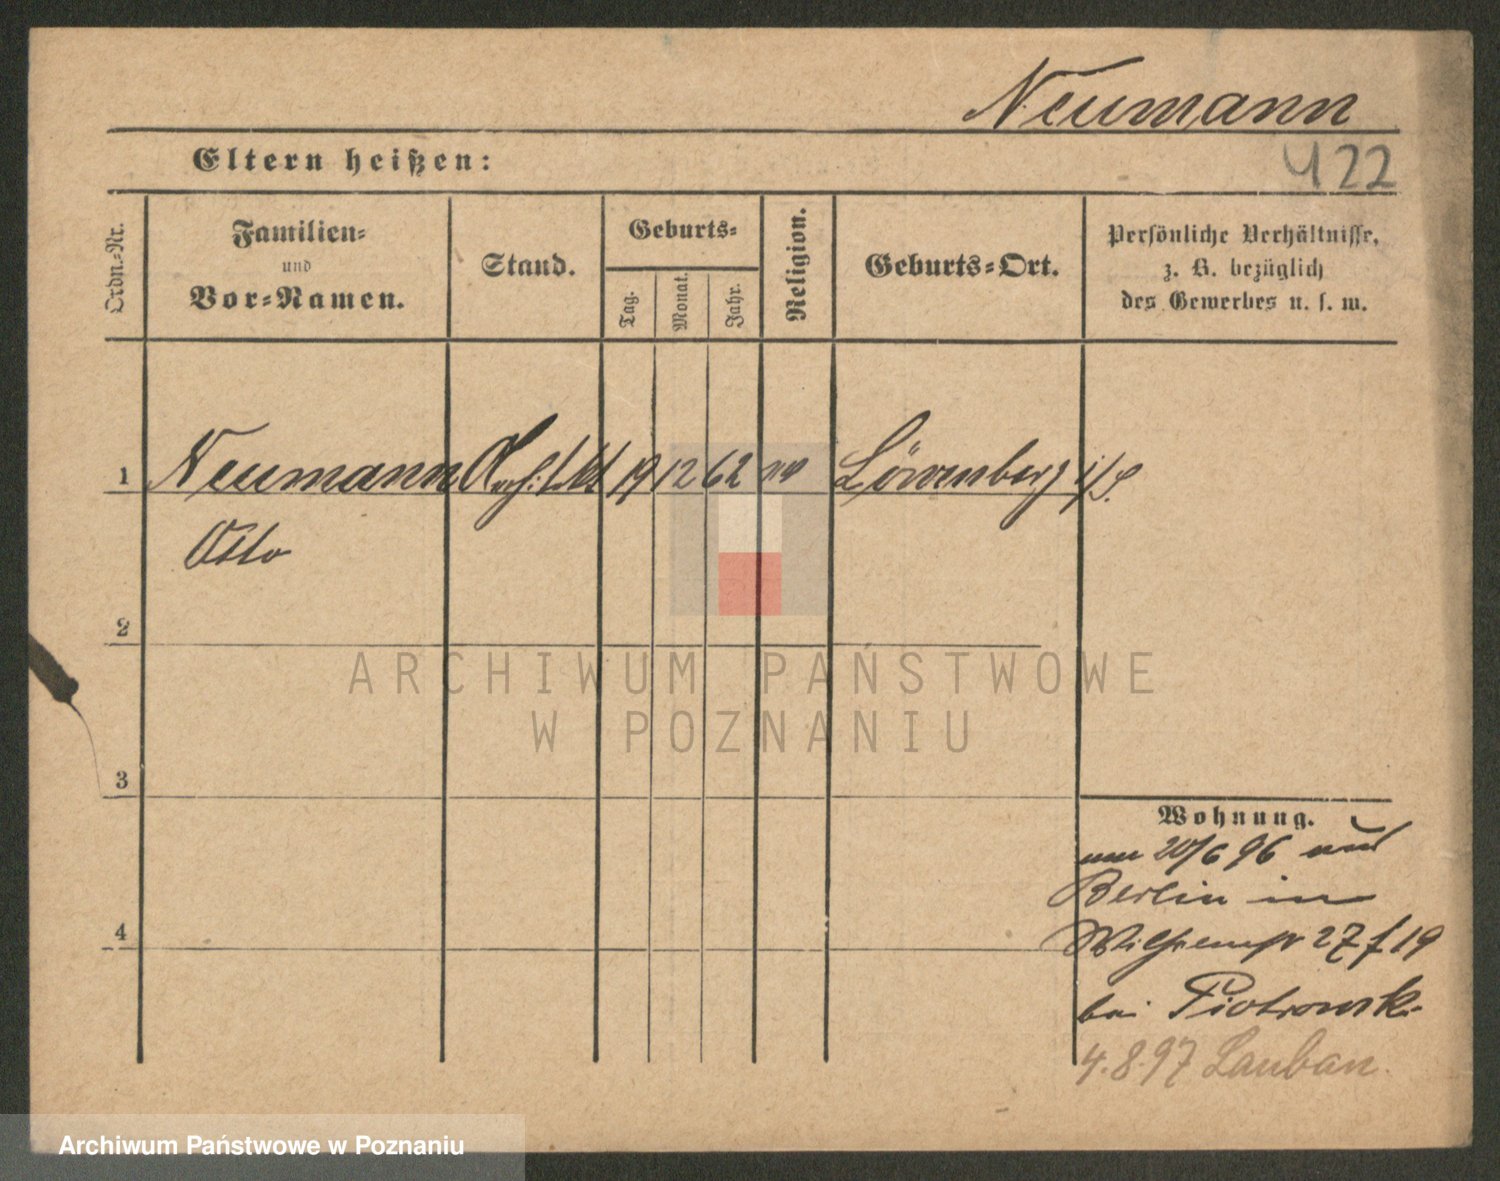 Neumann
Eltern heißen:
422
Ordn.-Nr.
Familien-
und
Vor-Namen.
Stand.
Geburts-
Tag.
Monat.
Jahr.
Religion.
Geburts-Ort.
Persönliche Verhältnisse,
z. B. bezüglich
des Gewerbes u. s. w.
1 Neumann Architekt 19 12 62 Löwenberg i/S.
Otto
2
ARCHIWUM PAŃSTWOWE
W POZNANIU
3
Wohnung.
20/6 96
Berlin in
27 19
bei Piotrowski
4
4.8.97 Lauban.
Archiwum Państwowe w Poznaniu